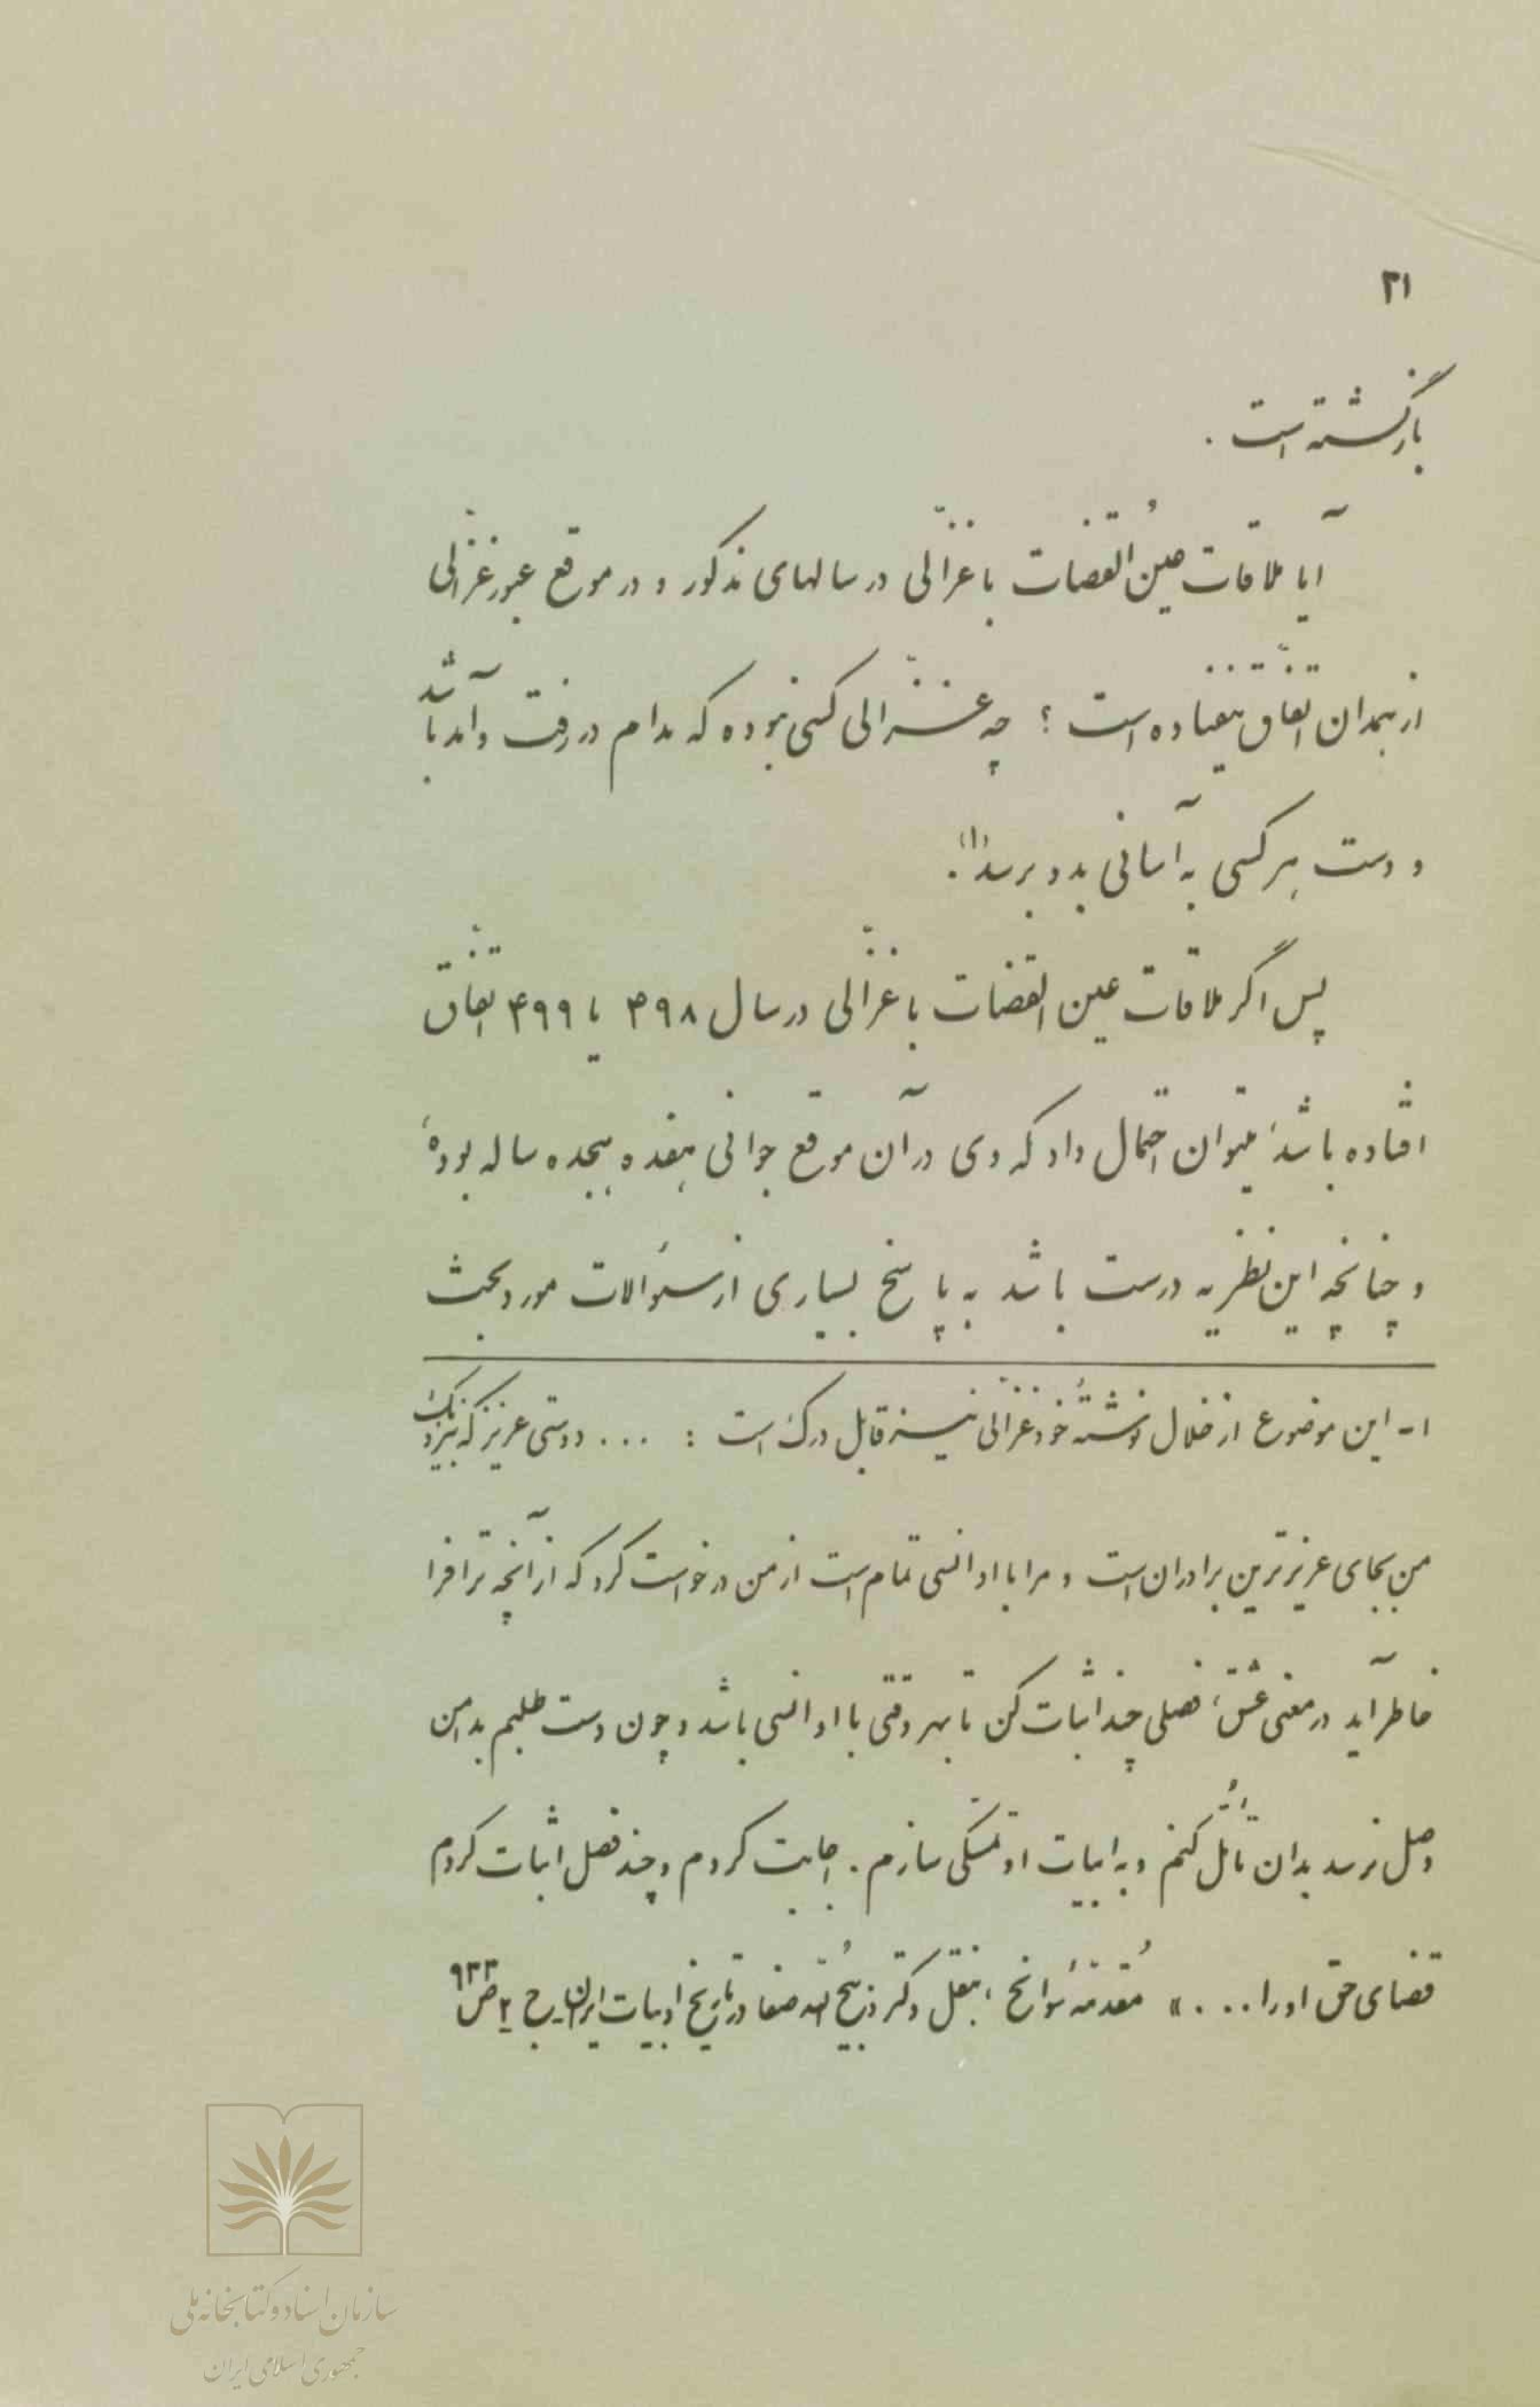 ۳۱
بازگشته است .
آیا ملاقات عینُ القضات با غزّالی در سالهای مذکور و در موقع عبور غزّالی
از همدان اتّفاق نیفتاده است ؟ چه غزّالی کسی نبوده که مدام در رفت و آمد باشد
و دست هر کسی به آسانی بدو برسد(۱).
پس اگر ملاقات عین القضات با غزّالی در سال ۴۹۸ یا ۴۹۹ اتّفاق
افتاده باشد، میتوان احتمال داد که وی در آن موقع جوانی هفده هیجده ساله بوده،
و چنانچه این نظریه درست باشد به پاسخ بسیاری از سئوالات مورد بحث
۱ـ این موضوع از خلال نوشتهٔ خود غزّالی نیز قابل درک است : ... دوستی عزیز که بنزدیک
من بجای عزیزترین برادران است و مرا با او انسی تمام است از من درخواست کرد که از آنچه ترا فرا
خاطر آید در معنی عشق، فصلی چند اثبات کن تا بهر وقتی با او انسی باشد و چون دست طلبم بدامن
وصل نرسد بدان تأمّل کنم و به ابیات او تمسّکی سازم . اجابت کردم و چند فصل اثبات کردم
قضای حق او را .... » مُقدمهٔ سوانح ، بنقل دکتر ذبیحُ اللّه صفا در تاریخ ادبیات ایران ـ ج ۲ ص ۹۳۳
سازمان اسناد و کتابخانه ملی
جمهوری اسلامی ایران